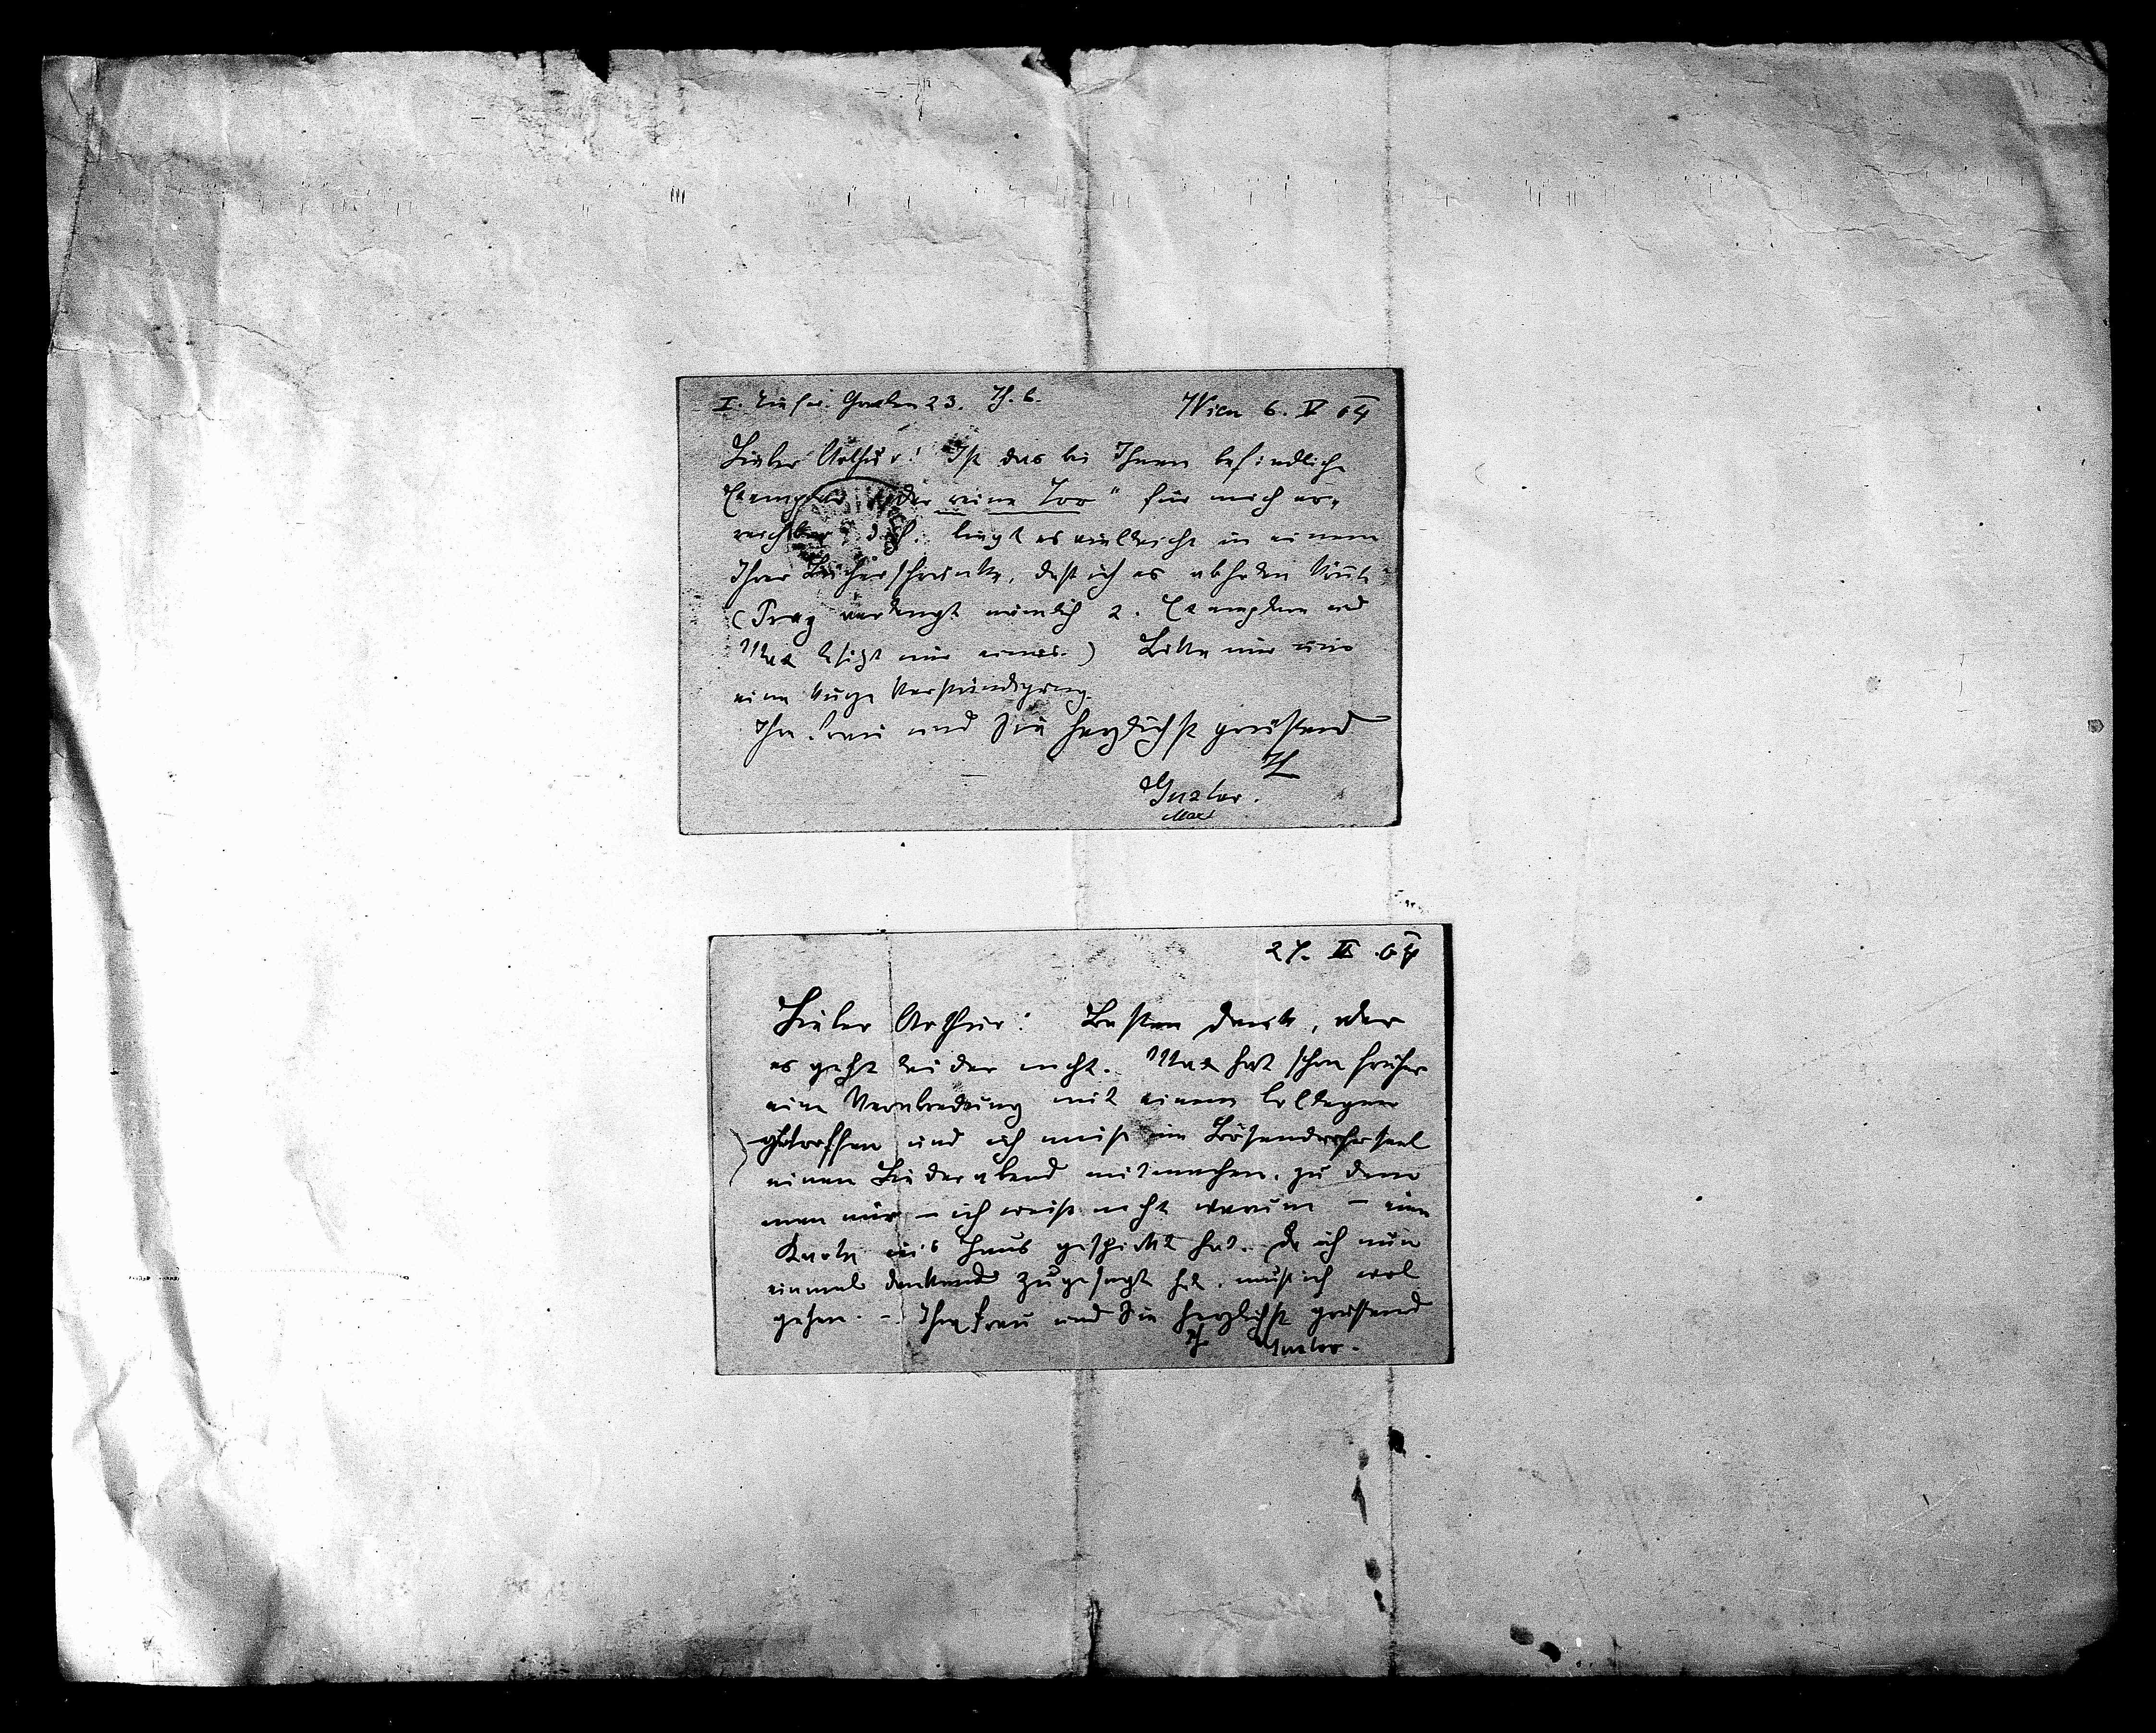 I. Tiefer Graben 23. Th. 6. Wien 6. IV 04
Lieber Arthur! Ist das bei Ihnen befindliche
Exemplar „der reine Tor“ für mich er-
reichbar? d. h. liegt es vielleicht in einem
Ihrer Bücherschränke, daß ich es abholen könnte
(Prag verlangt nämlich 2. Exemplare und
Max besitzt nur eines.) Bitte nur um
eine kurze Verständigung.
Ihre Frau und Sie herzlichst grüßend
Ihr
Gustav.
27. IV 04
Lieber Arthur! Besten Dank, aber
es geht leider nicht. Max hat schon früher
eine Verabredung mit einem Collegen
getroffen und ich muß im Bösendorfersaal
einen Liederabend mitmachen, zu dem
man mir – ich weiß nicht warum – eine
Karte ins Haus geschickt hat. Da ich nun
einmal dankend zugesagt hab, muß ich wol
gehen. – Ihre Frau und Sie herzlichst grüßend
Ihr Gustav.